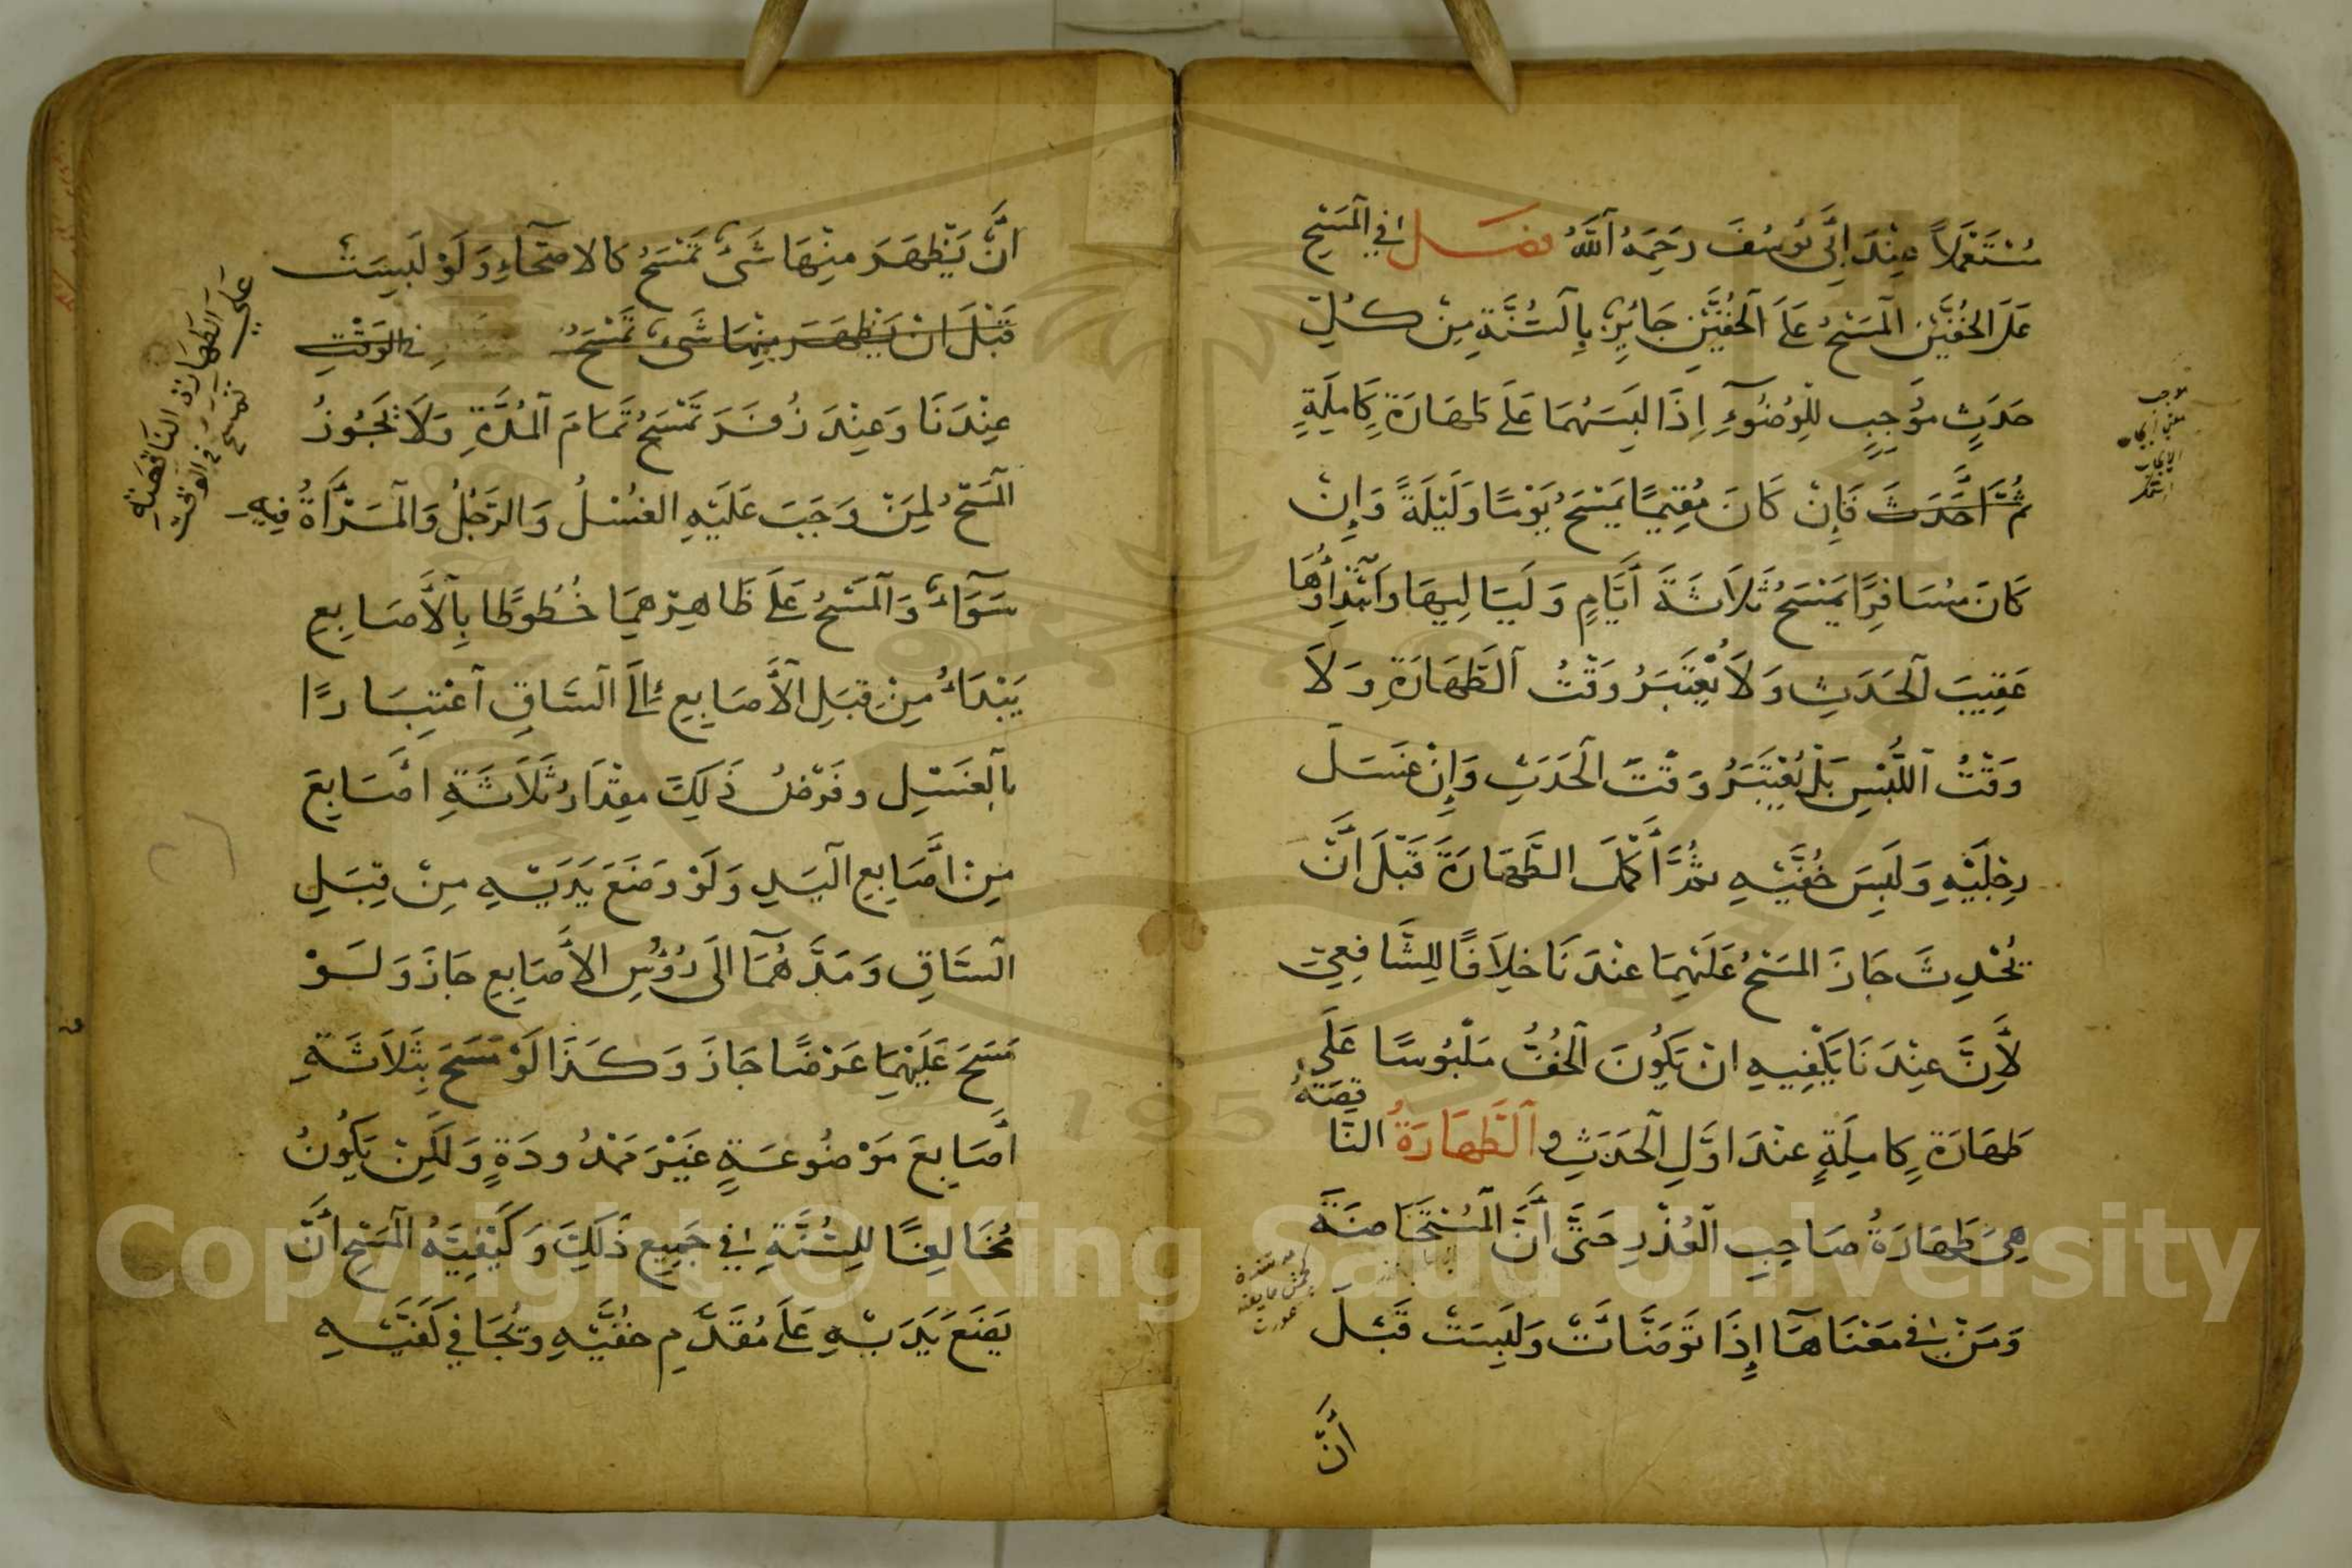 مُسْتَعْمَلاً عِنْدَ اَبِى يُوسُفَ رَحِمَهُ اَللّٰهُ فصل في المَسْحِ
عَلَى الخُفَّيْنِ المَسْحُ عَلَى الخُفَّيْنِ جَائِزٌ بِالسُّنَّةِ مِنْ كُلِّ
حَدَثٍ مُوجِبٍ لِلْوُضُوءِ اِذَا لَبِسَهُمَا عَلَى طَهَارَةٍ كَامِلَةٍ
ثُمَّ اَحْدَثَ فَإِنْ كَانَ مُقِيمًا يَمْسَحُ يَوْمًا وَلَيْلَةً وَإِنْ
كَانَ مُسَافِرًا يَمْسَحُ ثَلاَثَةَ أَيَّامٍ وَلَيَالِيهَا وَاَبْتِدَاؤُهَا
عَقِيبَ الحَدَثِ وَلاَ يُعْتَبَرُ وَقْتُ الطَّهَارَةِ وَلاَ
وَقْتُ اللُّبْسِ بَلْ يُعْتَبَرُ وَقْتُ الحَدَثِ وَإِنْ غَسَلَ
رِجْلَيْهِ وَلَبِسَ خُفَّيْهِ ثُمَّ أَكْمَلَ الطَّهَارَةَ قَبْلَ اَنْ
يُحْدِثَ جَازَ المَسْحُ عَلَيْهِمَا عِنْدَنَا خِلاَفًا لِلشَّافِعِيِّ
لأَنَّ عِنْدَنَا يَكْفِيهِ اَنْ يَكُونَ الخُفُّ مَلْبُوسًا عَلَى
طَهَارَةٍ كَامِلَةٍ عِنْدَ اَوَّلِ الحَدَثِ و الطَّهَارَةُ النَّاقِصَةُ
هِىَ طَهَارَةُ صَاحِبِ العُذْرِ حَتَّى أَنَّ المُسْتَحَاضَةَ
وَمَنْ فِى مَعْنَاهَا إِذَا تَوَضَّأَتْ وَلَبِسَتْ قَبْلَ
أَنْ
موجب
اَنْ يَظْهَرَ مِنْهَا شَىْءٌ تَمْسَحُ كَالاصِحَّاءِ وَلَوْ لَبِسَتْ
قَبْلَ اَنْ يَظْهَرَ مِنْهَا شَىْءٌ تَمْسَحُ فى الوَقْتِ
عَلَى الطَّهَارَةِ النَّاقِصَةِ
تمسح فى الوقت
عِنْدَنَا وَعِنْدَ زُفَرَ تَمْسَحُ تَمَامَ المُدَّةِ وَلاَ يَجُوزُ
المَسْحُ لِمَنْ وَجَبَ عَلَيْهِ الغُسْلُ وَالرَّجُلُ وَالمَرْأَةُ فِيهِ
سَوَآءٌ وَالمَسْحُ عَلَى ظَاهِرِهِمَا خُطُوطًا بِالأَصَابِعِ
يَبْدَأُ مِنْ قِبَلِ الأَصَابِعِ إِلَى السَّاقِ اعْتِبَارًا
بِالغَسْلِ وَفَرْضُ ذَلِكَ مِقْدَارُ ثَلاَثَةِ اَصَابِعَ
مِنْ اَصَابِعِ اليَدِ وَلَوْ وَضَعَ يَدَيْهِ مِنْ قِبَلِ
السَّاقِ وَمَدَّهُمَا الَى رُؤُسِ الأَصَابِعِ جَازَ وَلَوْ
مَسَحَ عَلَيْهِمَا عَرْضًا جَازَ وَكَذَا لَوْ مَسَحَ بِثَلاَثَةِ
أَصَابِعَ مَوْضُوعَةٍ غَيْرَ مَمْدُودَةٍ وَلَكِنْ يَكُونُ
مُخَالِفًا لِلسُّنَّةِ فِى جَمِيعِ ذَلِكَ وَكَيْفِيَّةُ المَسْحِ أَنْ
يَضَعَ يَدَيْهِ عَلَى مُقَدَّمِ خُفَّيْهِ وَيُجَافِي كَفَّيْهِ
Copyright © King Saud University
195